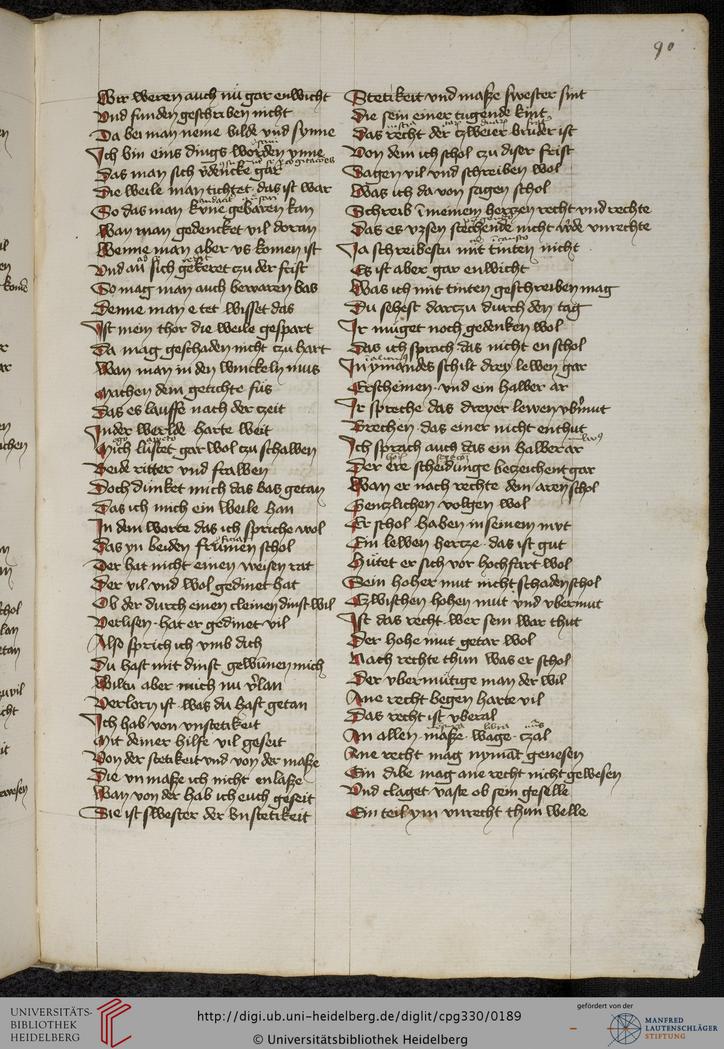 90
Wir weren auch nů gar enwicht
Vnd funden geschriben nicht
Da bei man neme bilde vnd synne
Ich bin eins dings worden ynne
Das man sich v̄dencke gar
Die weile man tichtet das ist war
So das man kůne gebaren kan
Wan man gedencket vil doran
Wenne man aber vs komen ist
Vnd an sich gekeret czu der frist
So mag man auch bewaren bas
Denne man e tet wisset das
Ist mein thor die weile gespart
Da mag geschaden nicht czu hart
Wan man in den winckeln mus
Machen dem getichte fůs
Das es lauffe nach der czeit
In der werlde harte weit
Mich lůstet gar wol czu schawen
Beide ritter vnd frawen
Doch dunket mich das bas getan
Das ich mich ein weile han
In dem worte das ich spriche wol
Das yn beiden frůmen schol
Der hat nicht einen weisen rat
Der vil vnd wol gedinet hat
Ob der durch einen cleinen dinst wil
Verlisen hat er gedinet vil
Also sprich ich vmb dich
Du hast mit dinst gewůnen mich
Wiltu aber mich nu v̄lan
Verlorn ist was du hast getan
Ich hab von vnstetikeit
Mit deiner hilfe vil geseit
Von der stetikeit vnd von der masze
Die vnmasze ich nicht enlasze
Wan von der hab ich euch geseit
Sie ist swester der vnstetikeit
Stetikeit vnd masze swester sint
Die sein einer tugende kint
Das recht der czweier bruder ist
Von dem ich schol czu diser frist
Sagen vil vnd schreiben wol
Was ich da von sagen schol
Schreib ī meinen herczen recht vnd rechte
Das es vzsen stechende nicht w̄de vnrechte
Ja schreibestu mit tinten nicht
Es ist aber gar enwicht
Was ich mit tinten geschreiben mag
Du sehest darczu durch den tag
Ir můget noch gedenken wol
Das ich sprach das nicht en schol
In ymandes schilt drey lewen gar
Erscheinen vnd ein halber ar
Ir spreche das dreyer lewen vb̓mut
Brechen das einer nicht enthut
Ich sprach auch das ein halber ar
Der ere scheidunge bezeichent gar
Wan er nach rechte dem aren schol
Genczlichen volgen wol
Er schol haben in seinem mut
Ein lewen hercze das ist gut
Hůtet er sich vor hochfart wol
Sein hoher mut nicht schaden schol
Czwischen hohen mut vnd vbermut
Ist das recht wer sein war thut
Der hohe mut getar wol
Nach rechte thun was er schol
Der vbermůtige man der wil
Ane recht begen harte vil
Das recht ist vberal
An allen masze wage czal
Ane recht mag nymāt genesen
Ein dibe mag ane recht nicht gewesen
Vnd claget vaste ob sein geselle
Ein teil ym vnrecht thun welle
UNIVERSITÄTS-
BIBLIOTHEK
HEIDELBERG
http://digi.ub.uni-heidelberg.de/diglit/cpg330/0189
© Universitätsbibliothek Heidelberg
gefördert von der
MANFRED
LAUTENSCHLÄGER
STIFTUNG